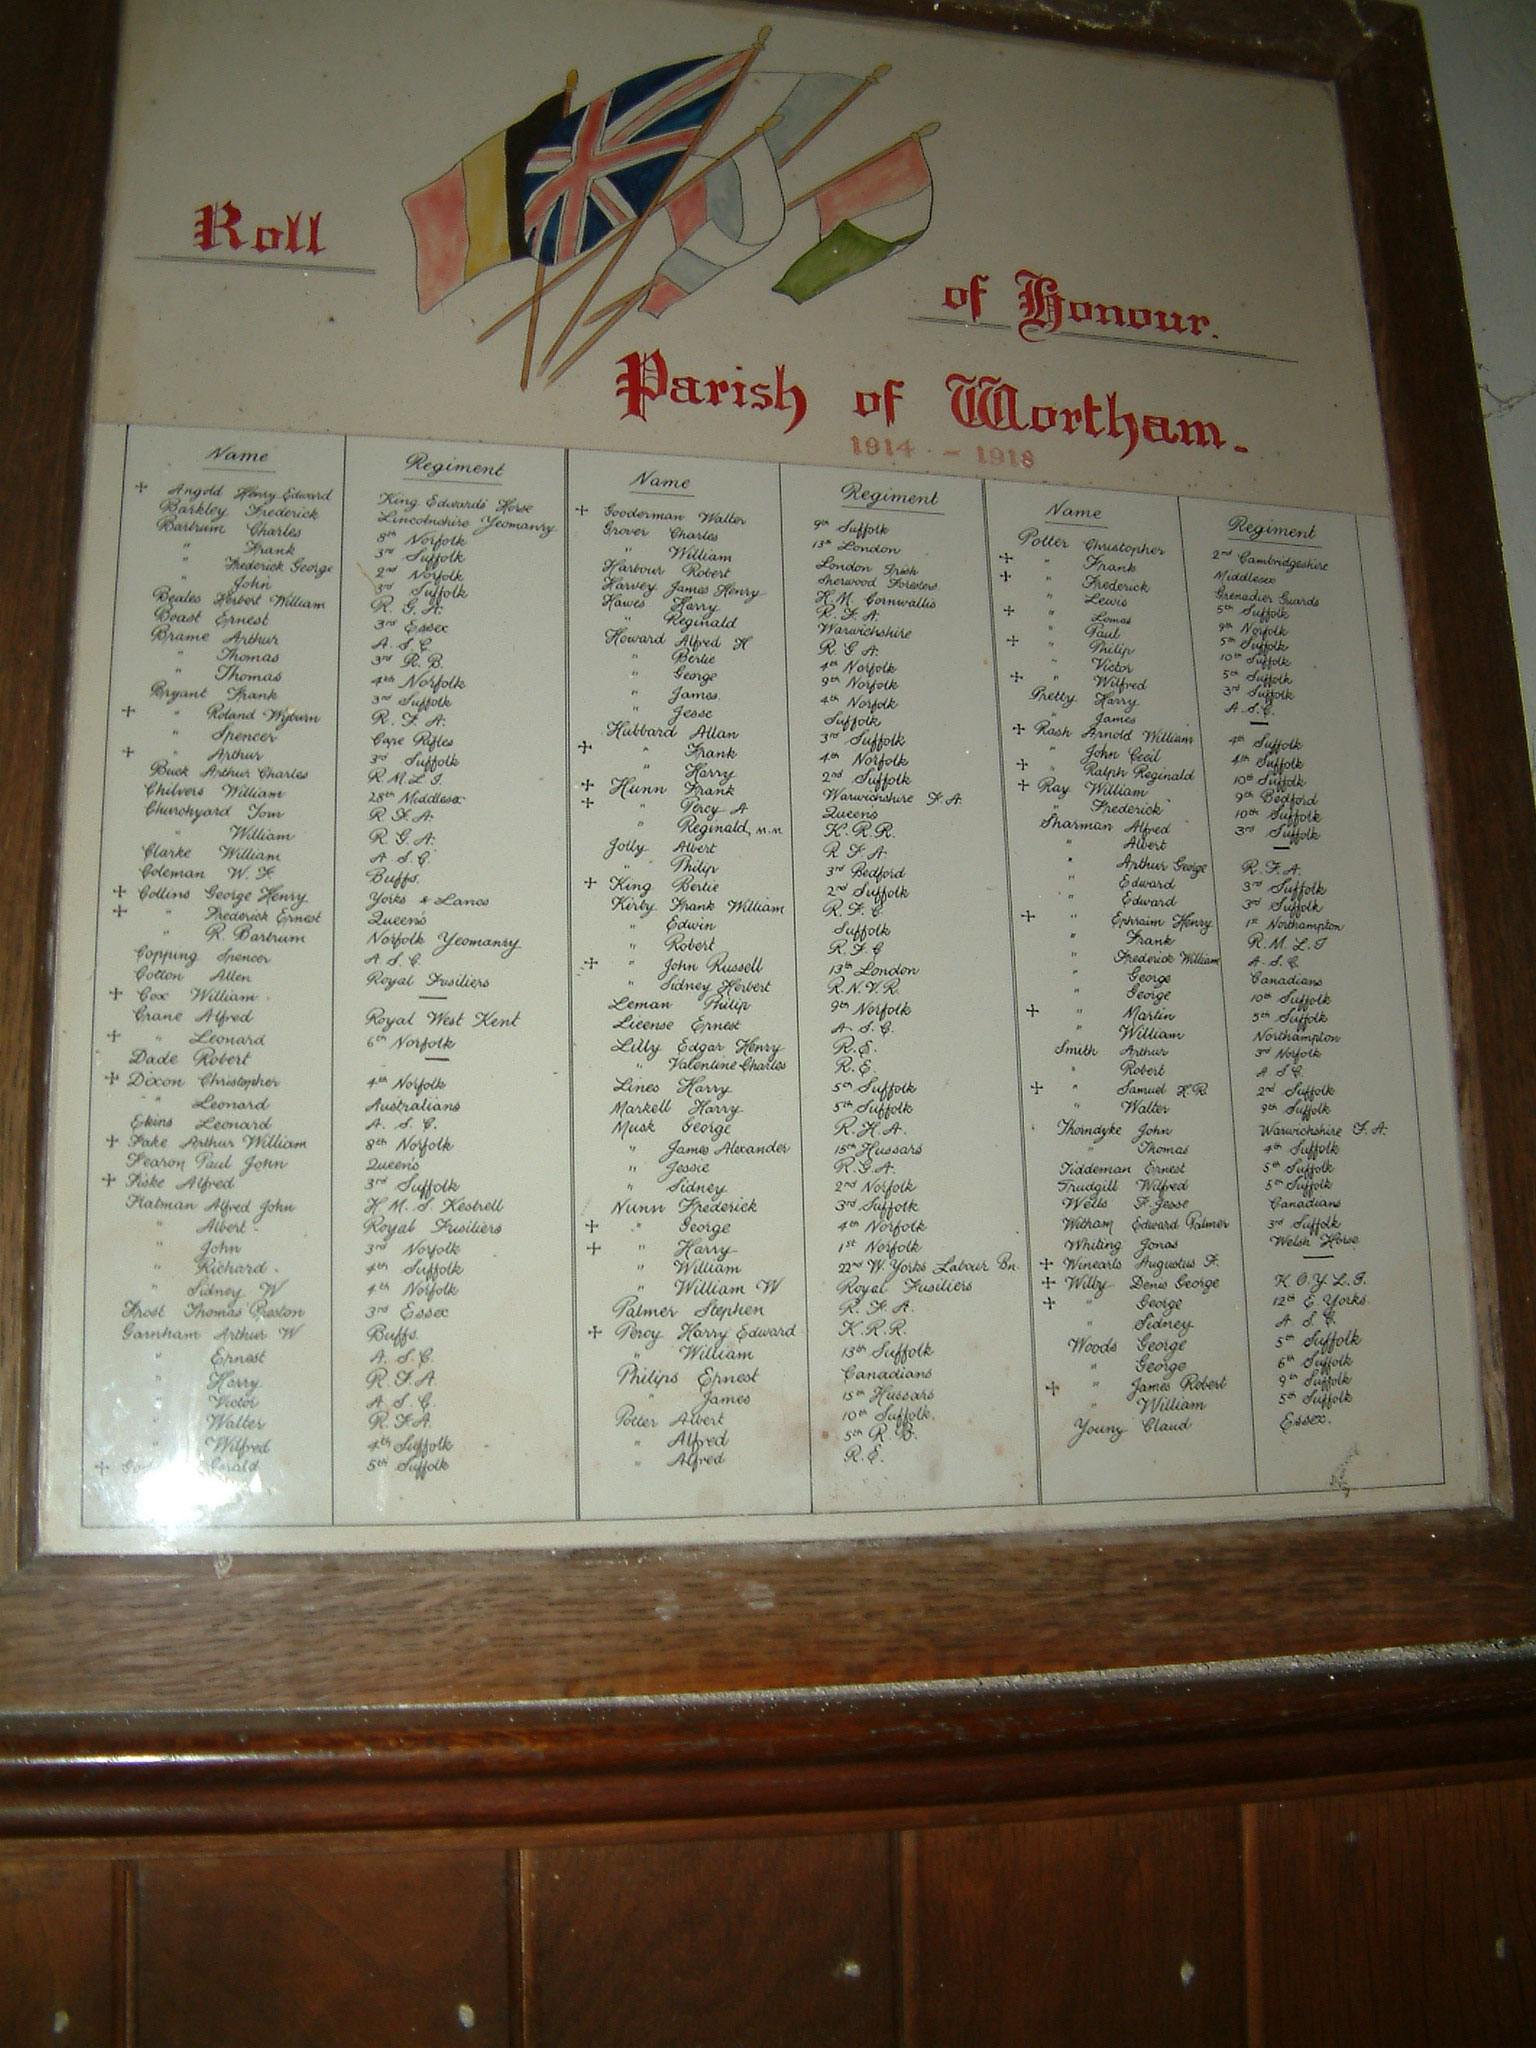 Roll of Honour.
Parish of Wortham.
1914 - 1918
Name Regiment
+ Angold Henry Edward King Edwards Horse
Barkley Frederick Lincolnshire Yeomanry
Bartrum Charles 8th Norfolk
" Frank 3rd Suffolk
" Frederick George 2nd Norfolk
" John 3rd Suffolk
Beales Herbert William R.G.A.
Boast Ernest 3rd Essex
Brame Arthur A.S.C.
" Thomas 3rd R.B.
" Thomas 4th Norfolk
Bryant Frank 3rd Suffolk
+ " Roland Wyburn R.F.A.
" Spencer Cape Rifles
+ " Arthur 3rd Suffolk
Buck Arthur Charles R.M.L.I.
Chilvers William 28th Middlesex
Churchyard Tom R.F.A.
" William R.G.A.
Clarke William A.S.C.
Coleman W.F. Buffs.
+ Collins George Henry Yorks & Lancs
+ " Frederick Ernest Queen's
" R. Bartrum Norfolk Yeomanry
Copping Spencer A.S.C.
Cotton Allen Royal Fusiliers
+ Cox William. —
Crane Alfred Royal West Kent
+ " Leonard 6th Norfolk
Dade Robert —
+ Dixon Christopher 4th Norfolk
" Leonard Australians
Ekins Leonard A.S.C.
+ Fake Arthur William 8th Norfolk
Fearon Paul John Queen's
+ Fiske Alfred 3rd Suffolk
Flatman Alfred John H.M.S. Kestrell
" Albert Royal Fusiliers
" John 3rd Norfolk
" Richard. 4th Suffolk
" Sidney W 4th Norfolk
Frost Thomas Preston 3rd Essex
Garnham Arthur W Buffs.
" Ernest A.S.C.
" Harry R.F.A.
" Victor A.S.C.
" Walter R.F.A.
" Wilfred 4th Suffolk
+ Gerald 5th Suffolk
Name Regiment
+ Gooderman Walter 9th Suffolk
Grover Charles 13th London
" William London Irish
Harbour Robert Sherwood Foresters
Harvey James Henry H.M. Cornwallis
Hawes Harry R.F.A.
" Reginald Warwichshire
Howard Alfred H R.G.A.
" Bertie 4th Norfolk
" George 9th Norfolk
" James. 4th Norfolk
" Jesse Suffolk
Hubbard Allan 3rd Suffolk
+ " Frank 4th Norfolk
" Harry 2nd Suffolk
+ Hunn Frank Warwichshire F.A.
+ " Percy A Queen's
" Reginald, M.M K.R.R.
Jolly Albert R.F.A.
" Philip 3rd Bedford
+ King Bertie 2nd Suffolk
Kirby Frank William R.F.C.
" Edwin Suffolk
" Robert R.F.C
+ " John Russell 13th London
" Sidney Herbert R.N.V.R.
Leman Philip 9th Norfolk
License Ernest A.S.C.
Lilly Edgar Henry R.E.
" Valentine Charles R.E.
Lines Harry 5th Suffolk
Markell Harry 5th Suffolk
Musk George R.H.A.
" James Alexander 15th Hussars
" Jessie R.G.A.
" Sidney 2nd Norfolk
Nunn Frederick 3rd Suffolk
+ " George 4th Norfolk
+ " Harry 1st Norfolk
" William 22nd W. Yorks Labour Bn.
" William W Royal Fusiliers
Palmer Stephen R.F.A.
+ Percy Harry Edward K.R.R.
" William 13th Suffolk
Philips Ernest Canadians
" James 15th Hussars
Potter Albert 10th Suffolk.
" Alfred 5th R.B.
" Alfred R.E.
Name Regiment
Potter Christopher 2nd Cambridgeshire
+ " Frank Middlesex
+ " Frederick Grenadier Guards
" Lewis 5th Suffolk
+ " Lomas 9th Norfolk
" Paul 5th Suffolk
+ " Philip 10th Suffolk
" Victor 5th Suffolk
+ " Wilfred 3rd Suffolk
Pretty Harry A.S.C.
" James —
+ Rash Arnold William 4th Suffolk
" John Cecil 4th Suffolk
+ " Ralph Reginald 10th Suffolk
+ Ray William 9th Bedford
" Frederick 10th Suffolk
Sharman Alfred 3rd Suffolk
" Albert —
" Arthur George R.F.A.
" Edward 3rd Suffolk
" Edward 3rd Suffolk
+ " Ephraim Henry 1st Northampton
" Frank R.M.L.I
" Frederick William A.S.C
" George Canadians
" George 10th Suffolk
+ " Martin 5th Suffolk
" William Northampton
Smith Arthur 3rd Norfolk
" Robert A.S.C.
+ " Samuel H.R. 2nd Suffolk
" Walter 9th Suffolk
Thorndyke John Warwichshire F.A.
" Thomas 4th Suffolk
Tiddeman Ernest 5th Suffolk
Trudgill Wilfred 5th Suffolk
Wells F. Jesse Canadians
Witham Edward Palmer 3rd Suffolk
Whiting Jonas Welsh Horse
+ Winearls Augustus F. —
+ Wilby Denis George K.O.Y.L.I.
+ " George 12th E. Yorks
" Sidney A.S.C.
Woods George 5th Suffolk
" George 6th Suffolk
+ " James Robert 9th Suffolk
" William 5th Suffolk
Young Claud Essex.